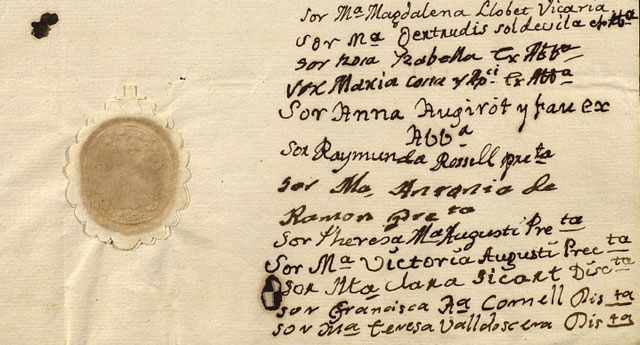 Sor Mª Magdalena Llobet Vicaria
Sor Mª Gertrudis Soldevila ex Abbª
Sor Rosa Ysabella Ex Abbª
Sor Maria Coma y Ex Abbª
Sor Anna Augirot y fau ex
Abbª
Sor Raymunda Rossell preta
Sor Ma. Antonia de
Ramon preta
Sor Theresa Mª Augusti Preta
Sor Mª Victoria Augusti Precta
Sor Mta Clara Sicart Discta
Sor Francisca Rª Cornell Dista
Sor Mª Teresa Valldosera Dista